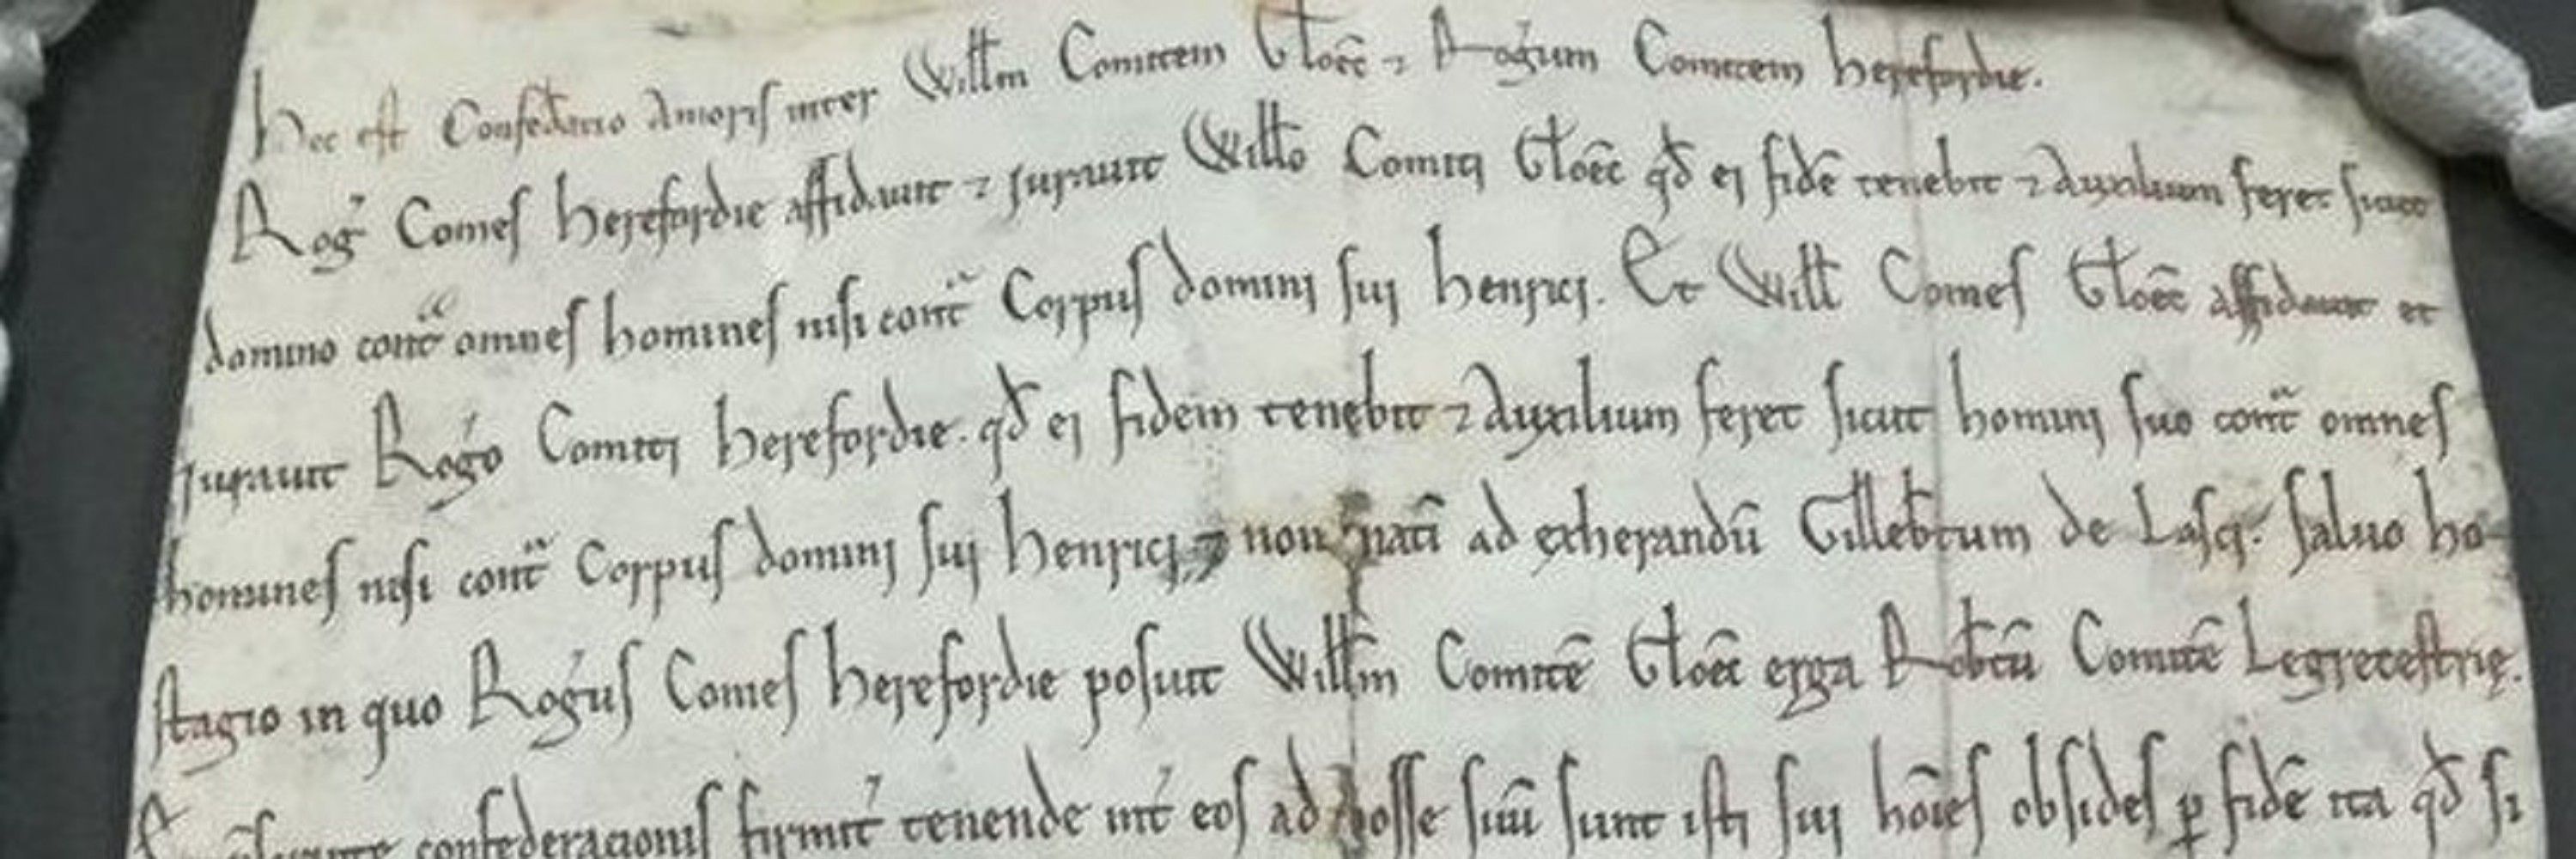 Hec est Confederatio Amoris inter Willm Comitem Gloec ⁊ Rogum Comitem herefordie.
Rog Comes herefordie affidauit ⁊ jurauit Willo Comiti Gloec qd ei fidē tenebit ⁊ Auxilium feret sicut
domino cont omnes homines nisi cont Corpus domini sui henrici. Et Will Comes Gloec affidauit et
jurauit Rogo Comiti herefordie. qd ei fidem tenebit ⁊ Auxilium feret sicut homini suo cont omnes
homines nisi cont Corpus domini sui henrici ⁊ non ad exherandū Gillebtum de Lasci. saluo ho-
stagio in quo Rogus Comes herefordie posuit Willm Comitē Gloec erga Robtū Comitē Legrecestrię.
confederacionis firmit tenende int eos ad posse suū sunt isti sui hōies obsides p fidē ita qd si